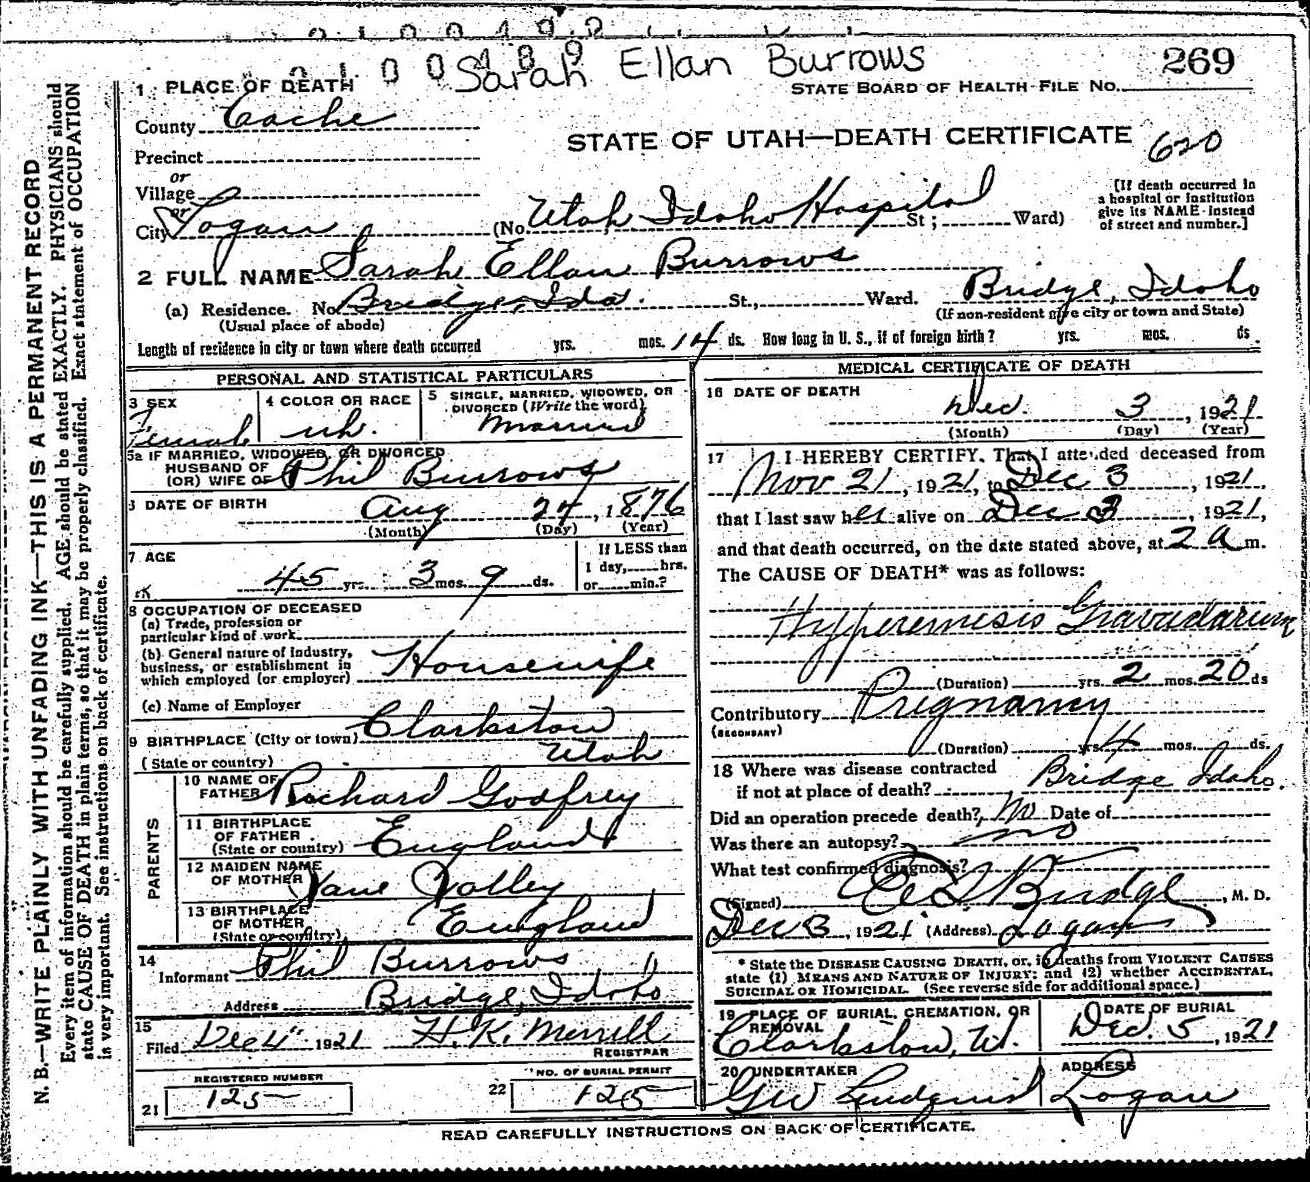 2100492
2100489
Sarah Ellan Burrows
269
STATE BOARD OF HEALTH-FILE NO.
1 PLACE OF DEATH
County Cache
STATE OF UTAH—DEATH CERTIFICATE 620
Precinct
or
Village
or
City Logan (No. Utah Idaho Hospital St; Ward)
[If death occurred in
a hospital or institution
give its NAME instead
of street and number.]
2 FULL NAME Sarah Ellan Burrows
(a) Residence. No. Bridge, Ida. St., Ward. Bridge, Idaho
(Usual place of abode) (If non-resident give city or town and State)
Length of residence in city or town where death occurred yrs. mos. 14 ds. How long in U. S., if of foreign birth? yrs. mos. ds.
PERSONAL AND STATISTICAL PARTICULARS
3 SEX Female
4 COLOR OR RACE wh.
5 SINGLE, MARRIED, WIDOWED, OR
DIVORCED (Write the word)
Married
5a IF MARRIED, WIDOWED, OR DIVORCED
HUSBAND OF
(OR) WIFE OF Phil Burrows
6 DATE OF BIRTH Aug 24, 1876
(Month) (Day) (Year)
7 AGE
45 yrs. 3 mos. 9 ds.
If LESS than
1 day, hrs.
or min.?
8 OCCUPATION OF DECEASED
(a) Trade, profession or
particular kind of work
(b) General nature of industry,
business, or establishment in
which employed (or employer) Housewife
(c) Name of Employer
9 BIRTHPLACE (City or town) Clarkston
(State or country) Utah
PARENTS
10 NAME OF
FATHER Richard Godfrey
11 BIRTHPLACE
OF FATHER
(State or country) England
12 MAIDEN NAME
OF MOTHER Jane Jolley
13 BIRTHPLACE
OF MOTHER
(State or country) England
14
Informant Phil Burrows
Address Bridge, Idaho
15
Filed Dec 4", 1921 H. K. Merrill
REGISTRAR
REGISTERED NUMBER
21 125
NO. OF BURIAL PERMIT
22 125
MEDICAL CERTIFICATE OF DEATH
16 DATE OF DEATH
Dec. 3, 1921
(Month) (Day) (Year)
17 I HEREBY CERTIFY, That I attended deceased from
Nov 21, 1921, to Dec 3, 1921,
that I last saw her alive on Dec 3, 1921,
and that death occurred, on the date stated above, at 2 a m.
The CAUSE OF DEATH* was as follows:
Hyperemesis Gravidarum
(Duration) yrs. 2 mos. 20 ds
Contributory Pregnancy
(SECONDARY)
(Duration) yrs. 4 mos. ds.
18 Where was disease contracted
if not at place of death? Bridge Idaho.
Did an operation precede death? no Date of
Was there an autopsy? no
What test confirmed diagnosis?
(Signed) Budge, M. D.
Dec 3, 1921 (Address) Logan
* State the DISEASE CAUSING DEATH, or, in deaths from VIOLENT CAUSES
state (1) MEANS AND NATURE OF INJURY; and (2) whether ACCIDENTAL,
SUICIDAL OR HOMICIDAL. (See reverse side for additional space.)
19 PLACE OF BURIAL, CREMATION, OR
REMOVAL
Clarkston, Ut.
DATE OF BURIAL
Dec. 5, 1921
20 UNDERTAKER
GW Lindquist
ADDRESS
Logan
READ CAREFULLY INSTRUCTIONS ON BACK OF CERTIFICATE.
N. B.—WRITE PLAINLY WITH UNFADING INK—THIS IS A PERMANENT RECORD
Every item of information should be carefully supplied. AGE should be stated EXACTLY. PHYSICIANS should
state CAUSE OF DEATH in plain terms, so that it may be properly classified. Exact statement of OCCUPATION
is very important. See instructions on back of certificate.